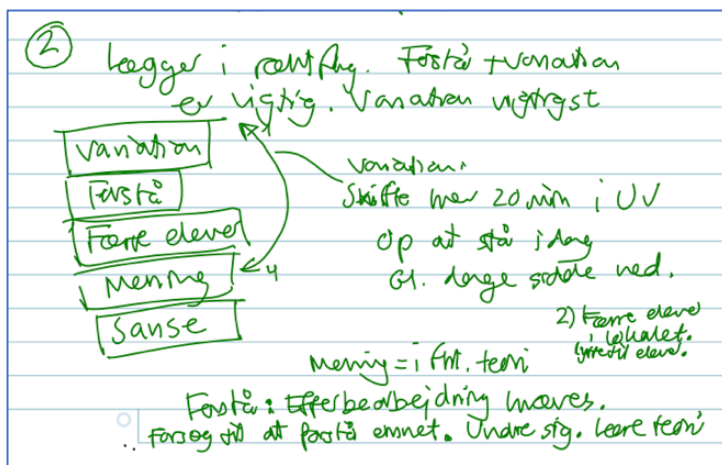 2
Lægger i rækkefølg. Forstå + variation
er vigtig. Variation vigtigst
Variation
Forstå
Færre elever
Mening
Sanse
Variation:
Skifte hver 20 min i UV
Op at stå i dag
Gl. dage sidde ned.
2) Færre elever
i lokalet.
lytte til elever.
Mening = i fht. teori
Forstå: Efterbearbejdning kræves.
Forsøg til at forstå emnet. Undre sig. lære teori